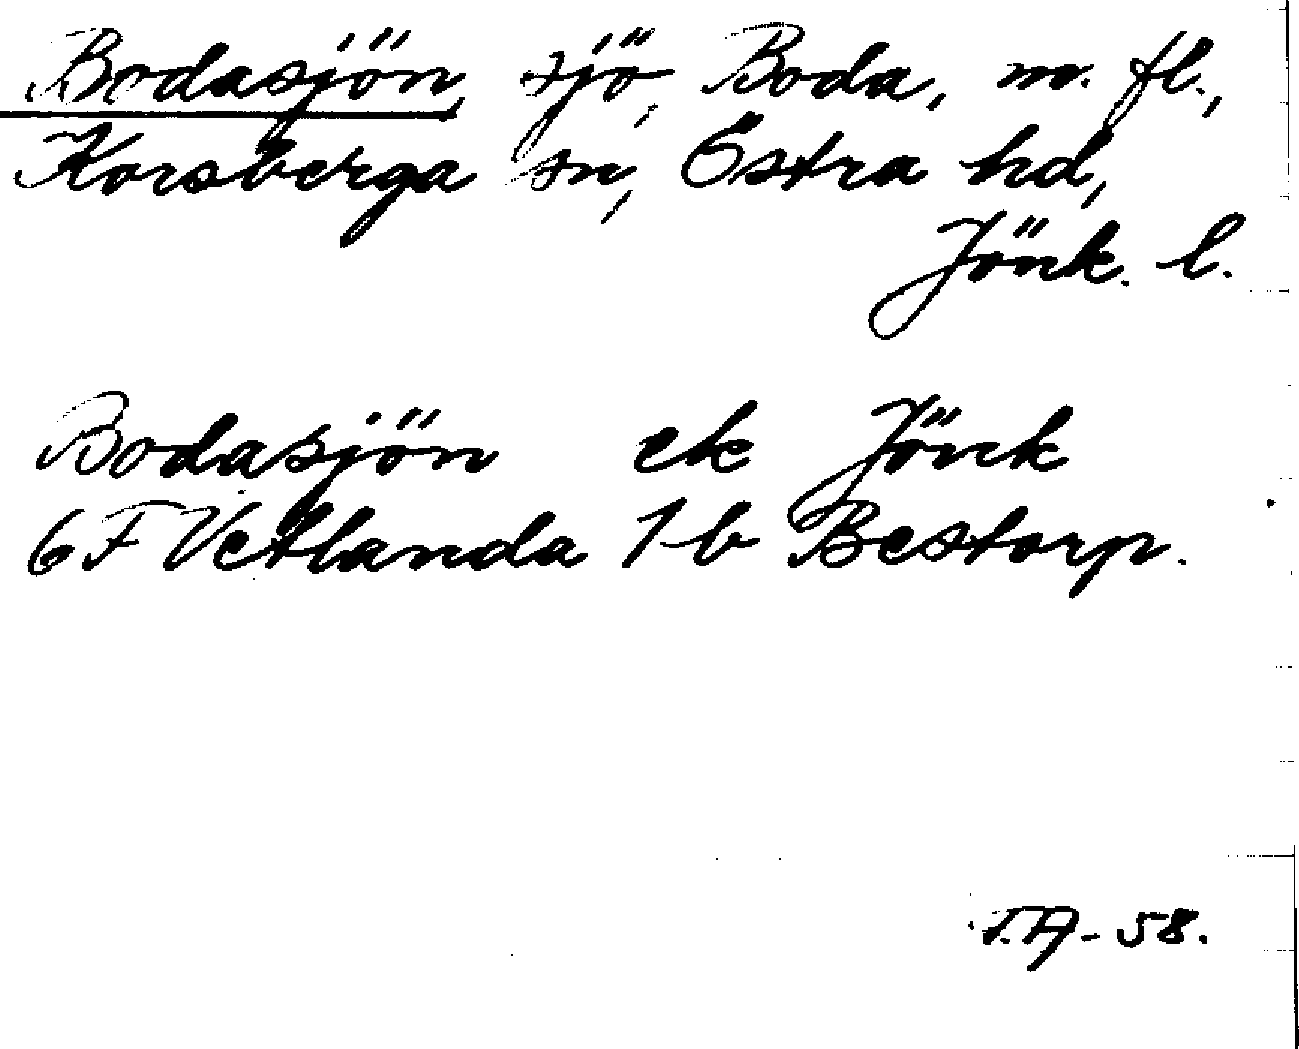 Bodasjön, sjö, Boda, m. fl.,
Korsberga sn, Östra hd,
Jönk. l.
Bodasjön ek Jönk
6F Vetlanda 1b Bestorp.
T.A-58.